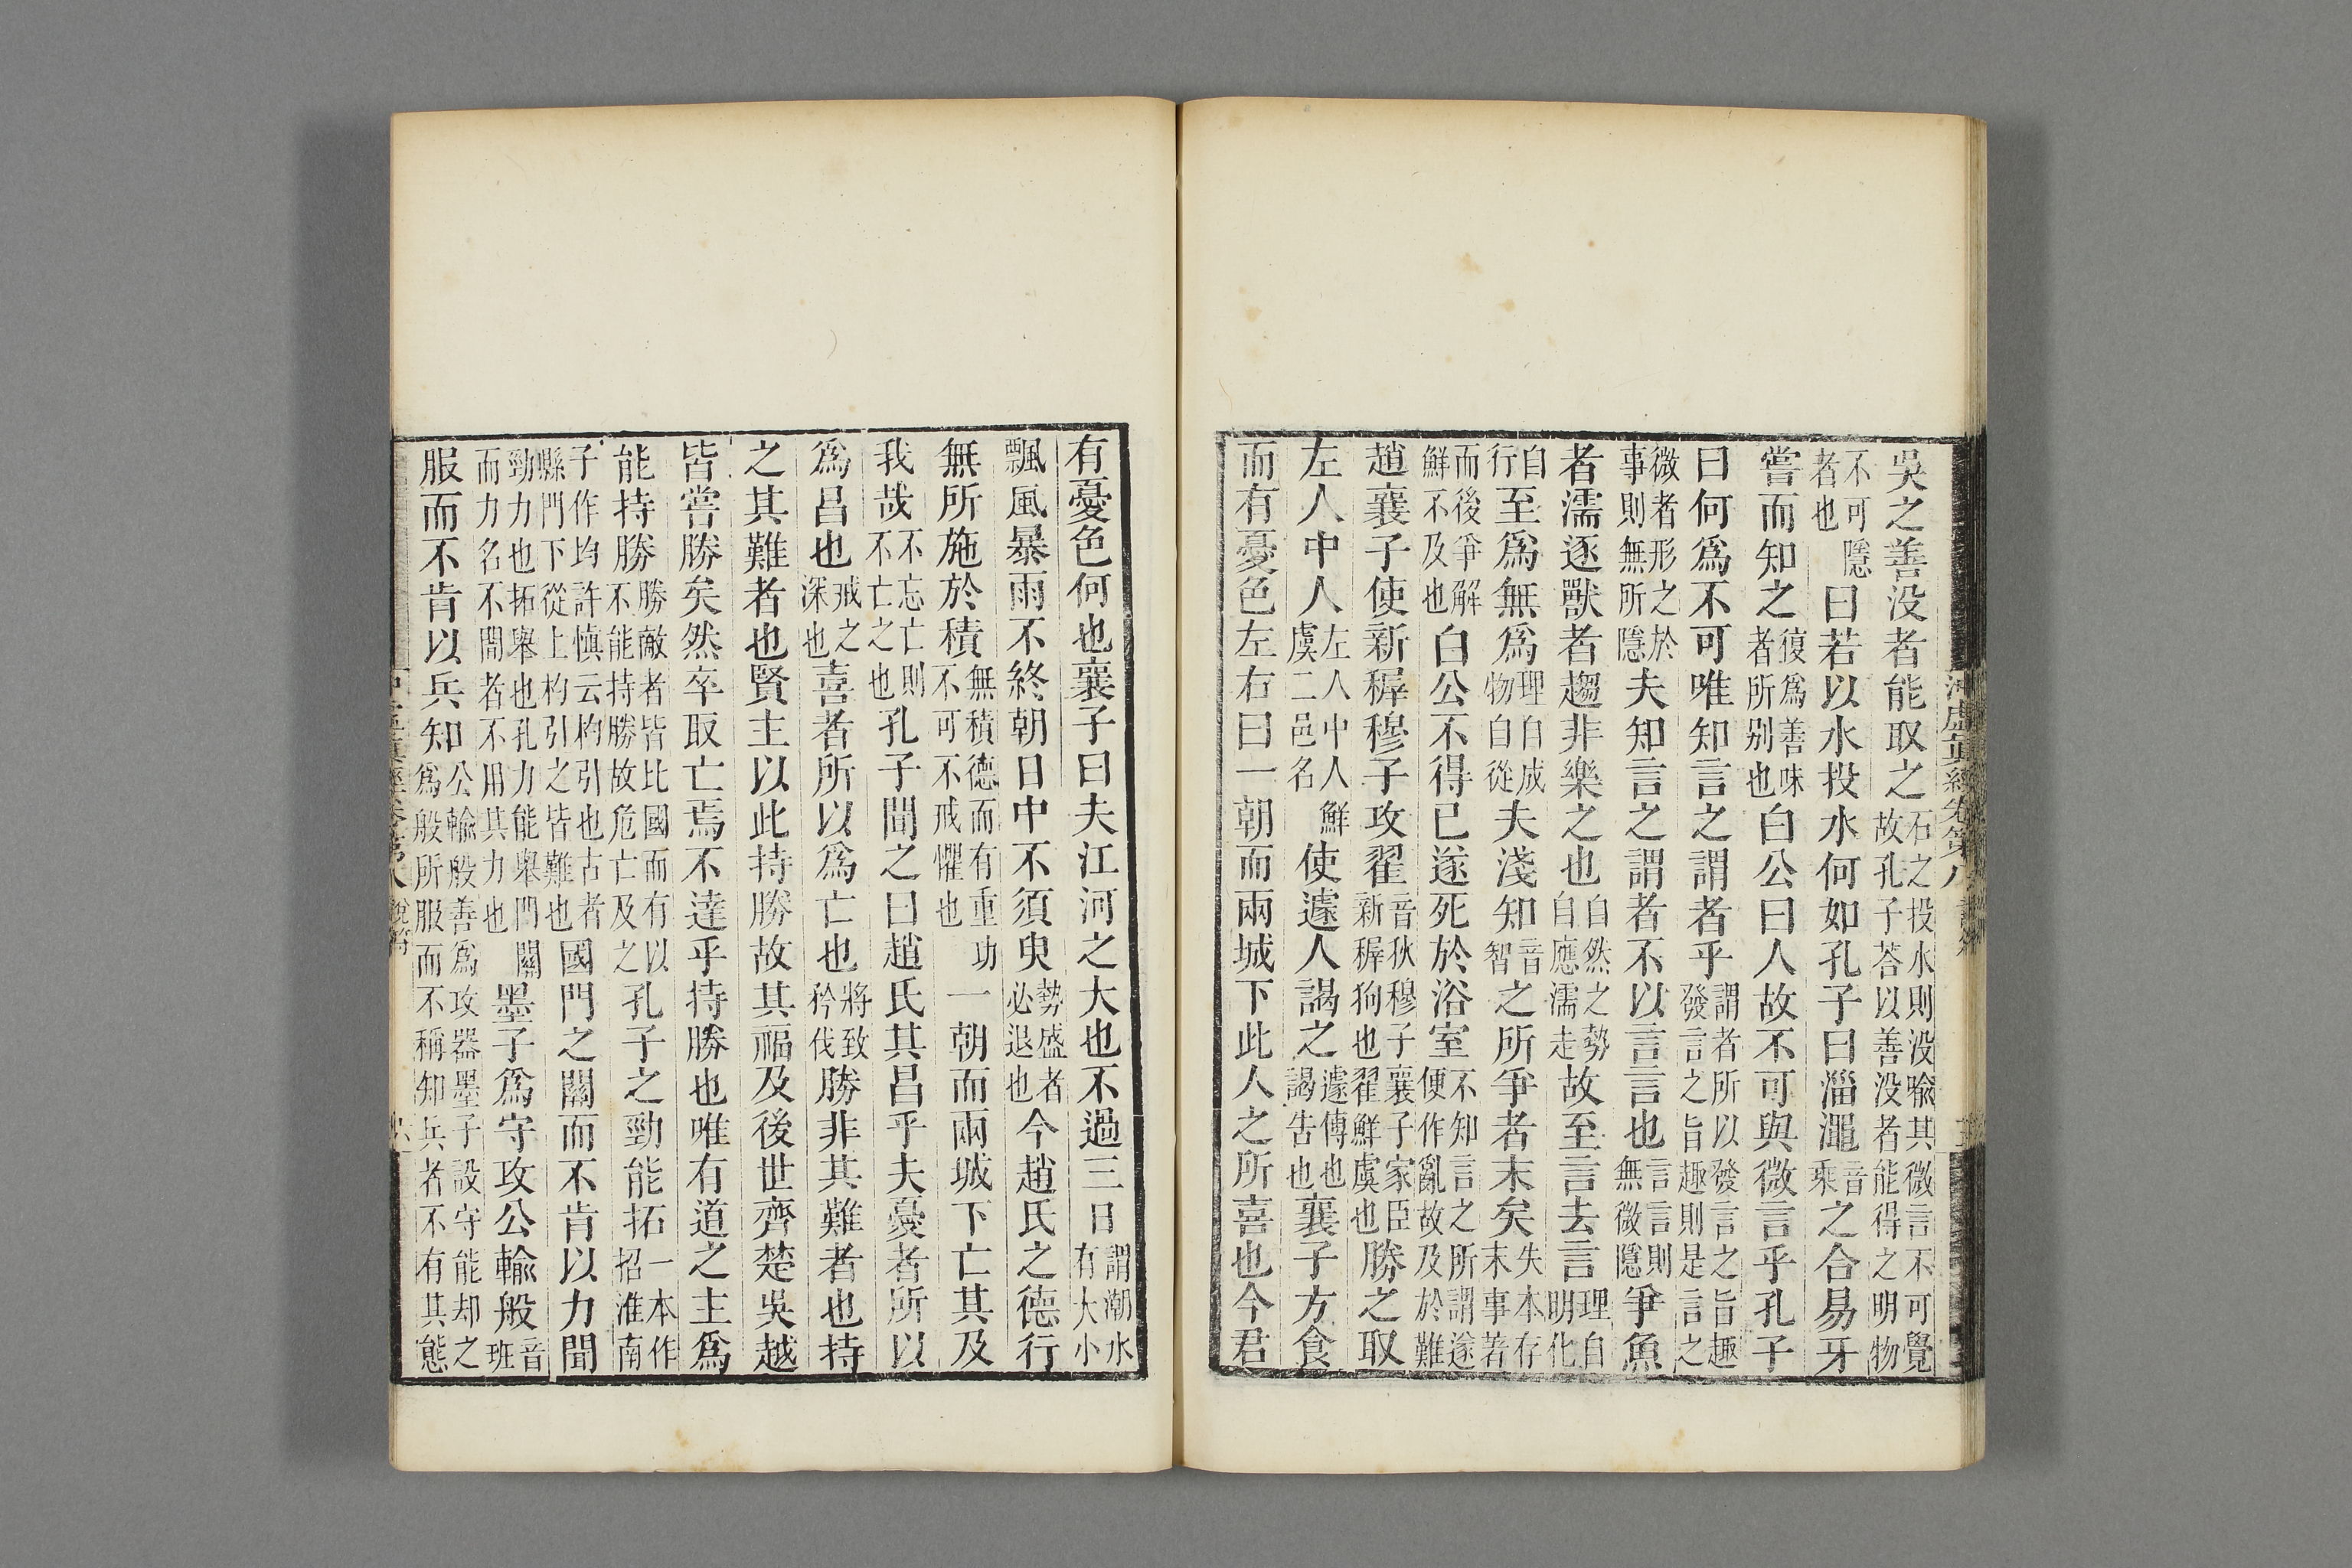 吳之善没者能取之石之投水則没喩其微言不可覺故孔子荅以善没者能得之明物
不可隱者也曰若以水投水何如孔子曰淄澠音乘之合易牙
嘗而知之復爲善味者所别也白公曰人故不可與微言乎孔子
曰何爲不可唯知言之謂者乎謂者所以發言之旨趣發言之旨趣則是言之
微者形之於事則無所隱夫知言之謂者不以言言也言言則無微隱爭魚
者濡逐獸者趨非樂之也自然之勢自應濡走故至言去言理自明化
自行至爲無爲理自成物自從夫淺知音智之所爭者末矣失本存末事著
而後爭解鮮不及也白公不得已遂死於浴室不知言之所謂遂便作亂故及於難
趙襄子使新穉穆子攻翟音狄穆子襄子家臣新穉狗也翟鮮虞也勝之取
左人中人左人中人鮮虞二邑名使遽人謁之遽傳也謁告也襄子方食
而有憂色左右曰一朝而兩城下此人之所喜也今君
有憂色何也襄子曰夫江河之大也不過三日謂潮水有大小
飄風暴雨不終朝日中不須臾勢盛者必退也今趙氏之德行
無所施於積無積德而有重功不可不戒懼也一朝而兩城下亡其及
我哉不忘亡則不亡之也孔子聞之曰趙氏其昌乎夫憂者所以
爲昌也戒之深也喜者所以爲亡也將致矜伐勝非其難者也持
之其難者也賢主以此持勝故其福及後世齊楚吳越
皆嘗勝矣然卒取亡焉不達乎持勝也唯有道之主爲
能持勝勝敵者皆比國而有以不能持勝故危亡及之孔子之勁能拓一本作招淮南
子作杓許慎云杓引也古者縣門下從上杓引之皆難也國門之關而不肯以力聞
勁力也拓舉也孔力能舉門關而力名不聞者不用其力也墨子爲守攻公輸般音班
服而不肯以兵知公輸般善爲攻器墨子設守能却之爲般所服而不稱知兵者不有其能